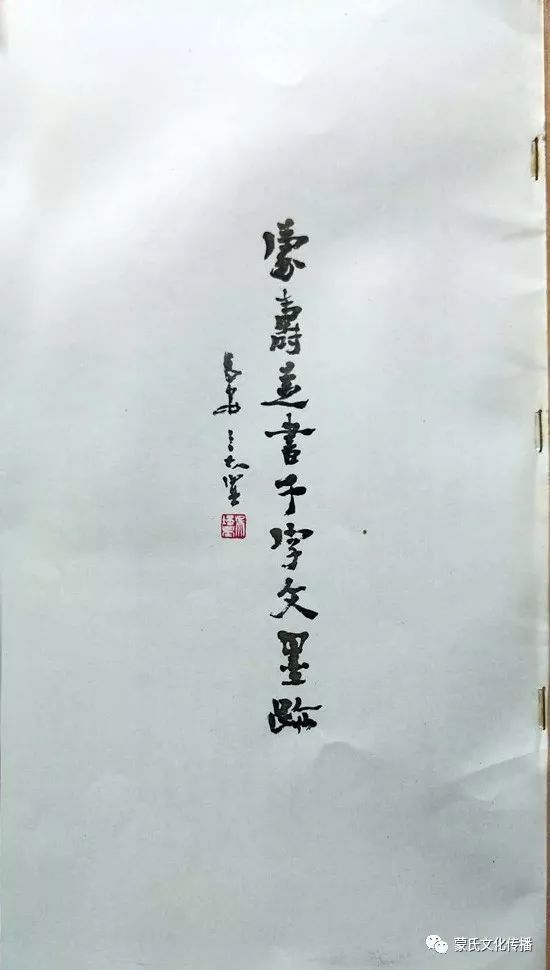 蒙壽芝書千字文墨跡
長安
蒙氏文化传播